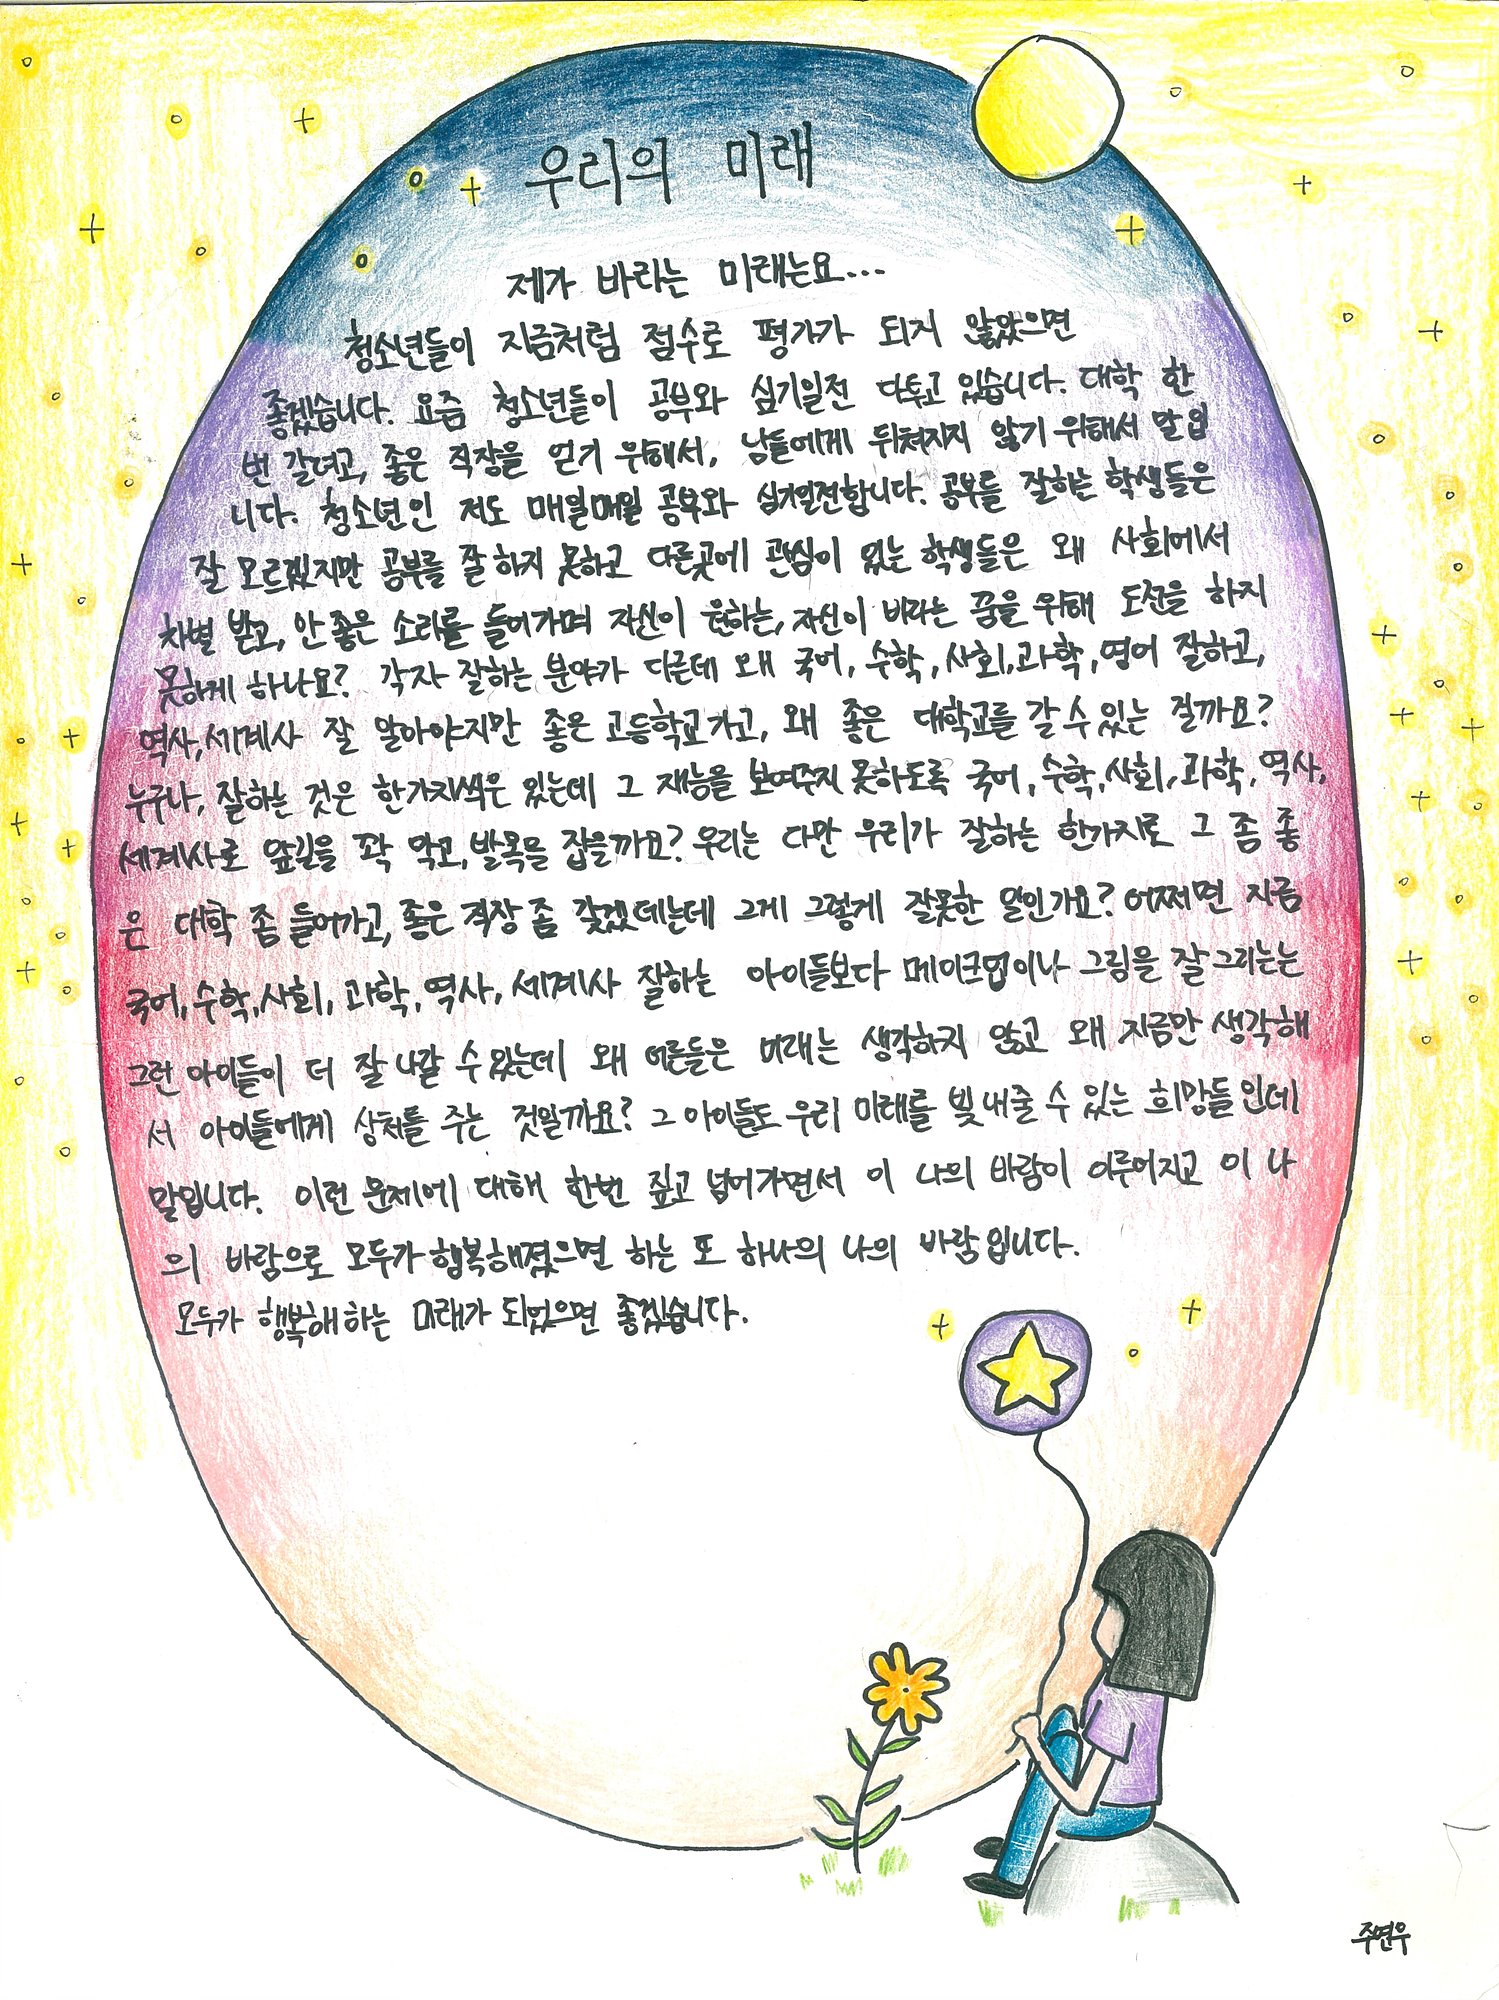 우리의 미래
제가 바라는 미래는요...
청소년들이 지금처럼 점수로 평가가 되지 않았으면
좋겠습니다. 요즘 청소년들이 공부와 심기일전 다투고 있습니다. 대학 한
번 갈려고, 좋은 직장을 얻기 위해서, 남들에게 뒤쳐지지 않기 위해서 말입
니다. 청소년인 저도 매일매일 공부와 심기일전합니다. 공부를 잘하는 학생들은
잘 모르겠지만 공부를 잘 하지 못하고 다른곳에 관심이 있는 학생들은 왜 사회에서
차별 받고, 안 좋은 소리를 들어가며 자신이 원하는, 자신이 바라는 꿈을 위해 도전을 하지
못하게 하나요? 각자 잘하는 분야가 다른데 왜 국어, 수학, 사회, 과학, 영어 잘하고,
역사, 세계사 잘 알아야지만 좋은 고등학교 가고, 왜 좋은 대학교를 갈 수 있는 걸까요?
누구나, 잘하는 것은 한가지씩은 있는데 그 재능을 보여주지 못하도록 국어, 수학, 사회, 과학, 역사,
세계사로 앞길을 꽉 막고, 발목을 잡을까요? 우리는 다만 우리가 잘하는 한가지로 그 좀 좋
은 대학 좀 들어가고, 좋은 직장 좀 갖겠데는데 그게 그렇게 잘못한 일인가요? 어쩌면 지금
국어, 수학, 사회, 과학, 역사, 세계사 잘하는 아이들보다 메이크업이나 그림을 잘 그리는는
그런 아이들이 더 잘 나갈 수 있는데 왜 어른들은 미래는 생각하지 않고 왜 지금만 생각해
서 아이들에게 상처를 주는 것일까요? 그 아이들도 우리 미래를 빛 내줄 수 있는 희망들인데
말입니다. 이런 문제에 대해 한번 짚고 넘어가면서 이 나의 바람이 이루어지고 이 나
의 바람으로 모두가 행복해졌으면 하는 또 하나의 나의 바람입니다.
모두가 행복해하는 미래가 되었으면 좋겠습니다.
주연우